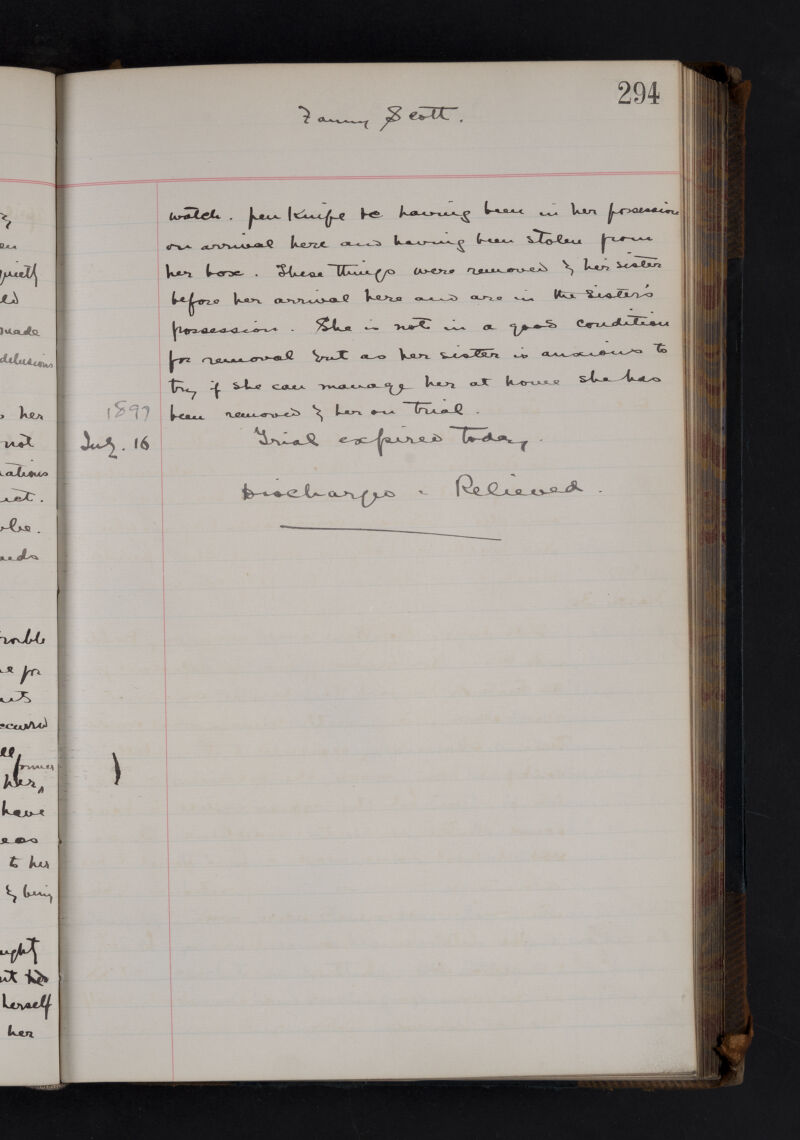 294
Fanny Scott.
watch. pen Knife &c having been in her possession
on arrival here and having been stolen from
her box. These things were removed by her sister
before her arrival here and are in the Sister's
possession. She is not in a good condition
for removal but as her sister is anxious to
try if she can manage her at home she has
been removed by her on trial.
1899
July. 16 Trial expired today.
Discharged - Relieved.
en
quietly
made
delusions
her
not
ations
uct.
eeds
rouble
e for
occurred
former
her,
have
eas
to her
by being
ught
herself
her